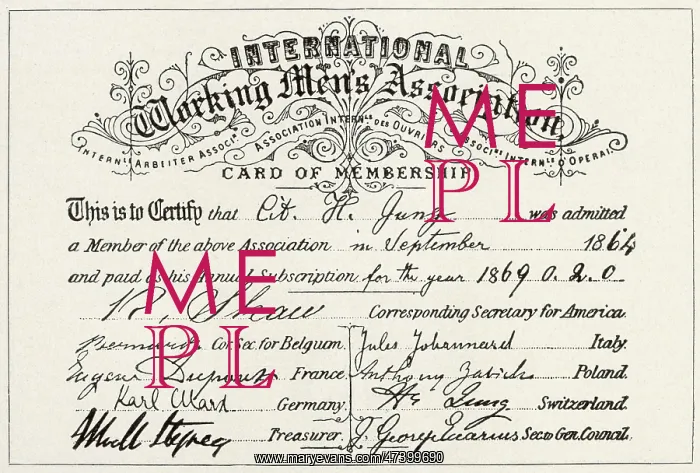 INTERNATIONAL
Working Men's Association
INTERN^LE ARBEITER ASSOCI^N ASSOCIATION INTERN^LE DES OUVRIERS ASSOCI^NE INTERN^LE D'OPERAI.
CARD OF MEMBERSHIP
This is to Certify that Cit. H. Jung was admitted
a Member of the above Association in September 1864
and paid as his Annual Subscription for the year 1869 0.2.0
R. Shaw Corresponding Secretary for America.
Bernard Cor. Sec. for Belgium. Jules Johannard Italy.
Eugene Dupont France. Anthony Zabicki Poland.
Karl Marx Germany. H. Jung Switzerland.
Treasurer. J. George Eccarius Sec to Gen. Council.
ME
PL
ME
PL
www.maryevans.com/47399690